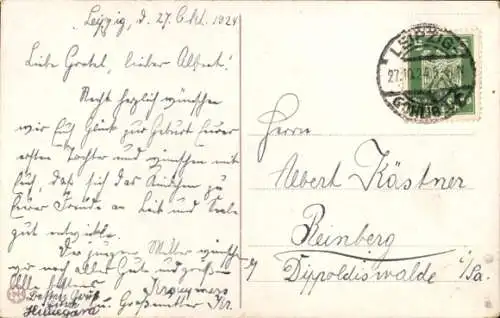 Leipzig, d. 27. Okt. 1924
Liebe Gretel, lieber Albert!
Recht herzlich wünschen
wir Euch Glück zur Geburt Eurer
ersten Tochter und wünschen mit
Euch, daß sich das Kindchen zu
Eurer Freude an Leib und Seele
gut entwickle.
Der jungen Mutter wünschen
wir noch alles Gute und grüßen
Alle bestens
u. Großmutter Kr.
Besten Gruß
Hildegard
LEIPZIG
27.10.24
GOHLIS
Herrn
Albert Kästner
Reinberg
b/ Dippoldiswalde i/Sa.